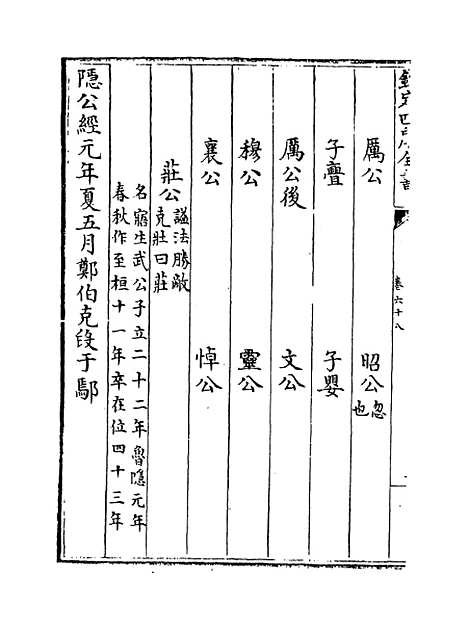 欽定四庫全書
卷六十八
厲公　昭公忽也
子亹　子嬰
厲公後　文公
穆公　靈公
襄公　悼公
莊公謚法勝敵
克壯曰莊
名寤生武公子立二十二年魯隱元年
春秋作至桓十一年卒在位四十三年
隱公經元年夏五月鄭伯克段于鄢